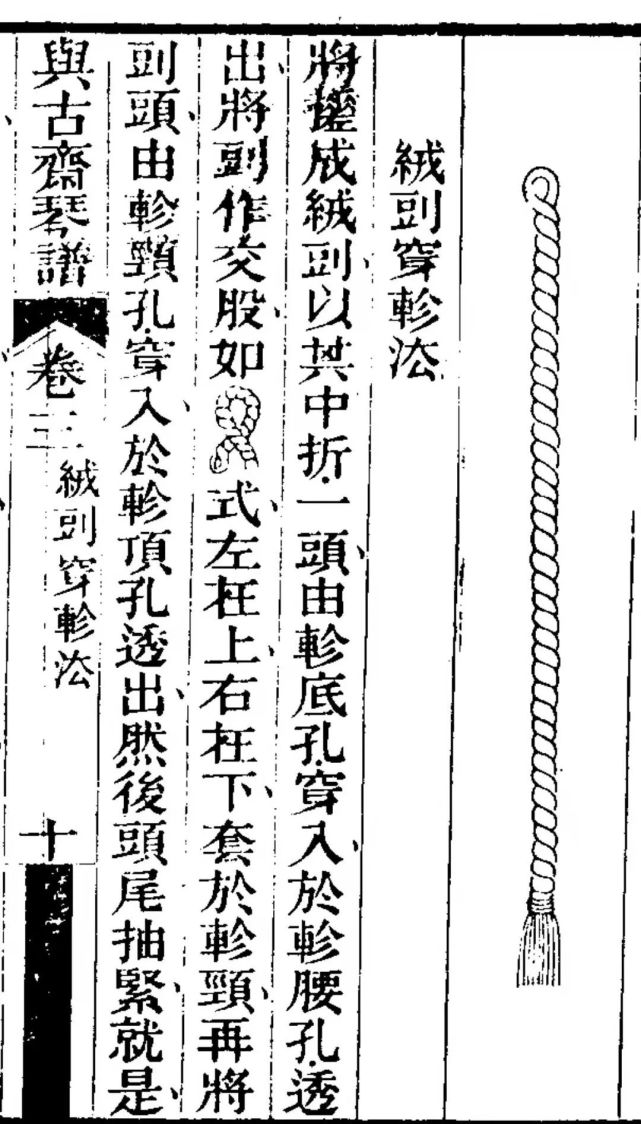 絨剅穿軫法
將成絨剅以其中折一頭由軫底孔穿入於軫腰孔透
出將剅作交股如式左枉上右枉下套於軫頸再將
剅頭由軫頸孔穿入於軫頂孔透出然後頭尾抽緊就是
與古齋琴譜 卷三 絨剅穿軫法 十